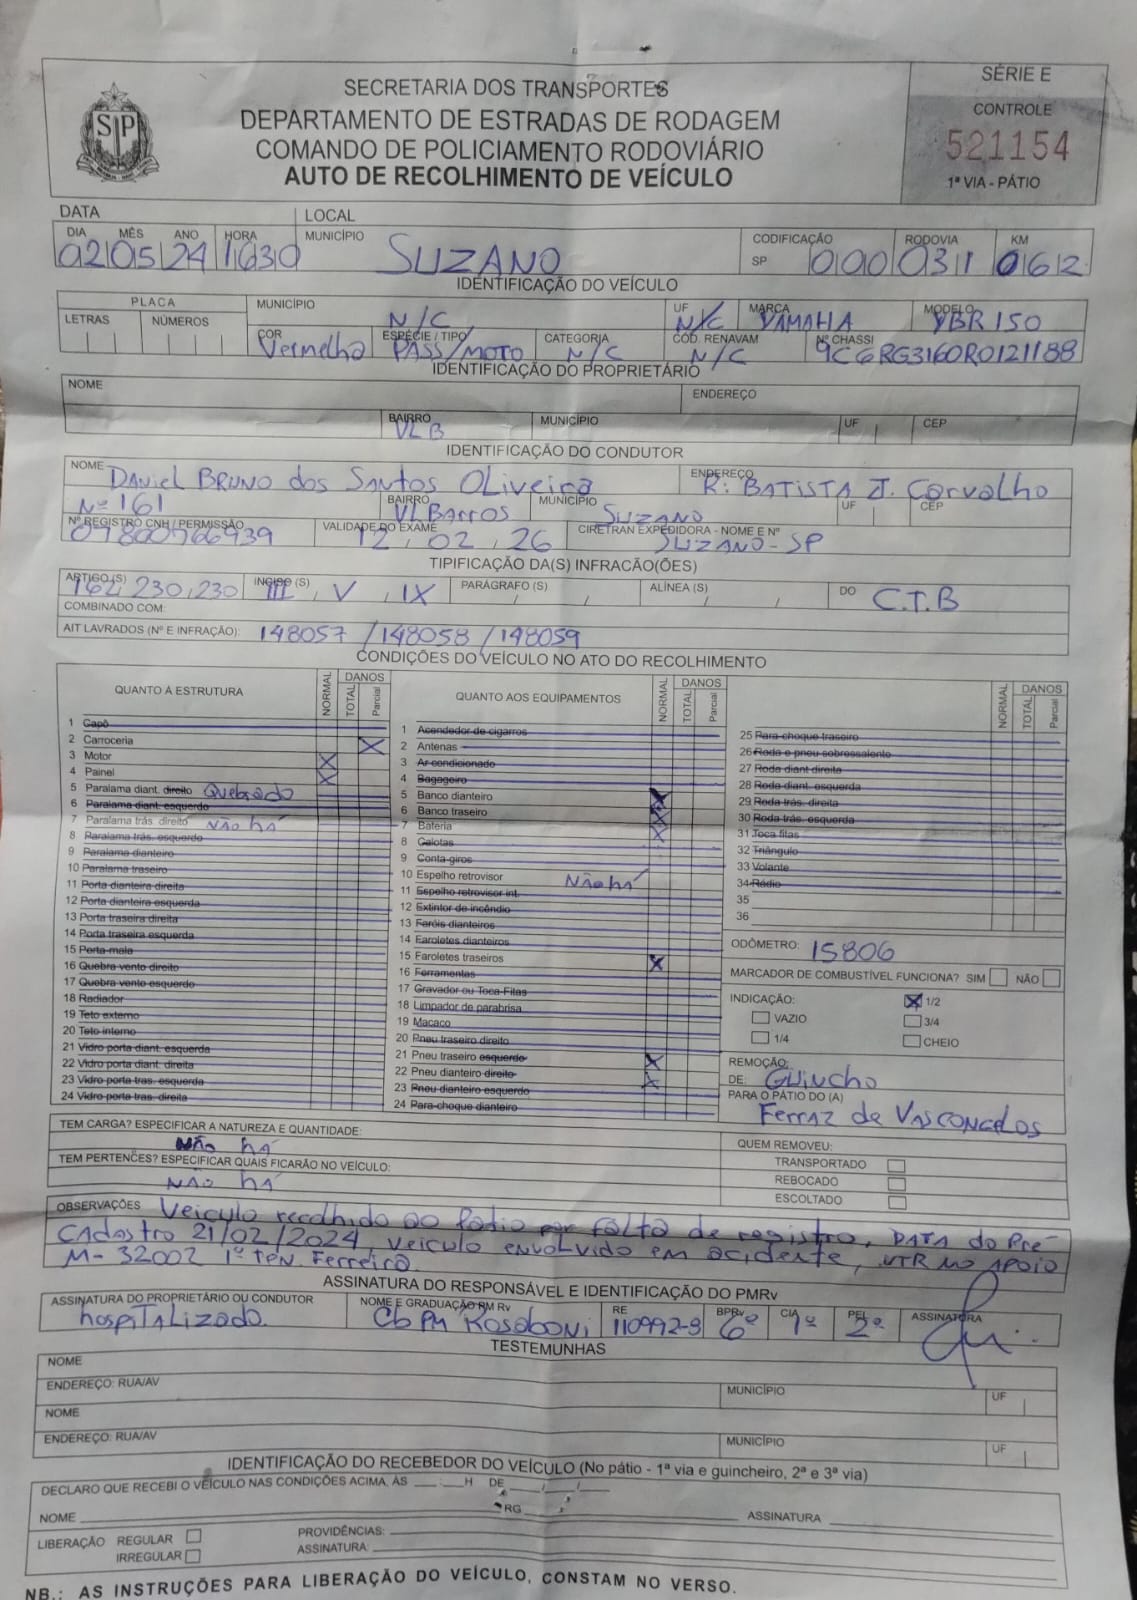 SÉRIE E
SECRETARIA DOS TRANSPORTES
CONTROLE
DEPARTAMENTO DE ESTRADAS DE RODAGEM
521154
COMANDO DE POLICIAMENTO RODOVIÁRIO
AUTO DE RECOLHIMENTO DE VEÍCULO
1ª VIA - PÁTIO
SP
DATA LOCAL
DIA MÊS ANO HORA MUNICÍPIO CODIFICAÇÃO RODOVIA KM
02 05 24 1630 SUZANO SP 000 031 062
IDENTIFICAÇÃO DO VEÍCULO
PLACA MUNICÍPIO UF MARCA MODELO
LETRAS NÚMEROS N/C N/C YAMAHA YBR 150
COR ESPÉCIE / TIPO CATEGORIA CÓD. RENAVAM Nº CHASSI
Vermelha PASS/MOTO N/C N/C 9C6RG3160R0121188
IDENTIFICAÇÃO DO PROPRIETÁRIO
NOME ENDEREÇO
BAIRRO MUNICÍPIO UF CEP
VL B
IDENTIFICAÇÃO DO CONDUTOR
NOME DANIEL BRUNO dos SANTOS OLIVEIRA ENDEREÇO R: BATISTA J. Carvalho
Nº 161 BAIRRO VL BARROS MUNICÍPIO SUZANO UF CEP
Nº REGISTRO CNH / PERMISSÃO VALIDADE DO EXAME CIRETRAN EXPEDIDORA - NOME E Nº
07800766939 12, 02, 26 SUZANO-SP
TIPIFICAÇÃO DA(S) INFRAÇÃO(ÕES)
ARTIGO(S) 162, 230, 230 INCISO (S) III, V, IX PARÁGRAFO (S) ALÍNEA (S) DO C.T.B
COMBINADO COM:
AIT LAVRADOS (Nº E INFRAÇÃO): 148057 /148058 /148059
CONDIÇÕES DO VEÍCULO NO ATO DO RECOLHIMENTO
QUANTO À ESTRUTURA NORMAL DANOS TOTAL Parcial
1 Capô
2 Carroceria X
3 Motor X
4 Painel X
5 Paralama diant. direito Quebrado
6 Paralama diant. esquerdo
7 Paralama trás. direito NÃO há
8 Paralama trás. esquerdo
9 Paralama dianteiro
10 Paralama traseiro
11 Porta dianteira direita
12 Porta dianteira esquerda
13 Porta traseira direita
14 Porta traseira esquerda
15 Porta-mala
16 Quebra vento direito
17 Quebra vento esquerdo
18 Radiador
19 Teto externo
20 Teto interno
21 Vidro porta diant. esquerda
22 Vidro porta diant. direita
23 Vidro porta tras. esquerda
24 Vidro porta tras. direita
QUANTO AOS EQUIPAMENTOS NORMAL DANOS TOTAL Parcial
1 Acendedor de cigarros
2 Antenas
3 Ar condicionado
4 Bagageiro
5 Banco dianteiro X
6 Banco traseiro X
7 Bateria X
8 Calotas
9 Conta-giros
10 Espelho retrovisor NÃO há
11 Espelho retrovisor int.
12 Extintor de incêndio
13 Faróis dianteiros
14 Faroletes dianteiros
15 Faroletes traseiros X
16 Ferramentas
17 Gravador ou Toca-Fitas
18 Limpador de parabrisa
19 Macaco
20 Pneu traseiro direito
21 Pneu traseiro esquerdo X
22 Pneu dianteiro direito X
23 Pneu dianteiro esquerdo
24 Para-choque dianteiro
NORMAL DANOS TOTAL Parcial
25 Para-choque traseiro
26 Roda e pneu sobressalento
27 Roda diant direita
28 Roda diant. esquerda
29 Roda trás. direita
30 Roda trás. esquerda
31 Toca fitas
32 Triângulo
33 Volante
34 Rádio
35
36
ODÔMETRO: 15806
MARCADOR DE COMBUSTÍVEL FUNCIONA? SIM NÃO
INDICAÇÃO: X 1/2
VAZIO 3/4
1/4 CHEIO
REMOÇÃO:
DE: GUINCHO
PARA O PÁTIO DO (A)
Ferraz de VASCONCELOS
TEM CARGA? ESPECIFICAR A NATUREZA E QUANTIDADE:
NÃO há
TEM PERTENCES? ESPECIFICAR QUAIS FICARÃO NO VEÍCULO:
NÃO há
QUEM REMOVEU:
TRANSPORTADO
REBOCADO
ESCOLTADO
OBSERVAÇÕES Veículo recolhido ao Pátio por falta de registro, DATA do Pré-
Cadastro 21/02/2024 veículo envolvido em acidente, VTR NO APOIO
M-32002 1º TEN. Ferreira.
ASSINATURA DO RESPONSÁVEL E IDENTIFICAÇÃO DO PMRv
ASSINATURA DO PROPRIETÁRIO OU CONDUTOR NOME E GRADUAÇÃO PM Rv RE BPRv CIA PEL ASSINATURA
hospitalizado. Cb PM Rosaboni 110992-9 6º 1º 2º
TESTEMUNHAS
NOME
ENDEREÇO: RUA/AV MUNICÍPIO UF
NOME
ENDEREÇO: RUA/AV MUNICÍPIO UF
IDENTIFICAÇÃO DO RECEBEDOR DO VEÍCULO (No pátio - 1ª via e guincheiro, 2ª e 3ª via)
DECLARO QUE RECEBI O VEÍCULO NAS CONDIÇÕES ACIMA, ÀS ___:___H DE ___/___/___
NOME RG ASSINATURA
LIBERAÇÃO REGULAR PROVIDÊNCIAS:
IRREGULAR ASSINATURA:
NB.: AS INSTRUÇÕES PARA LIBERAÇÃO DO VEÍCULO, CONSTAM NO VERSO.